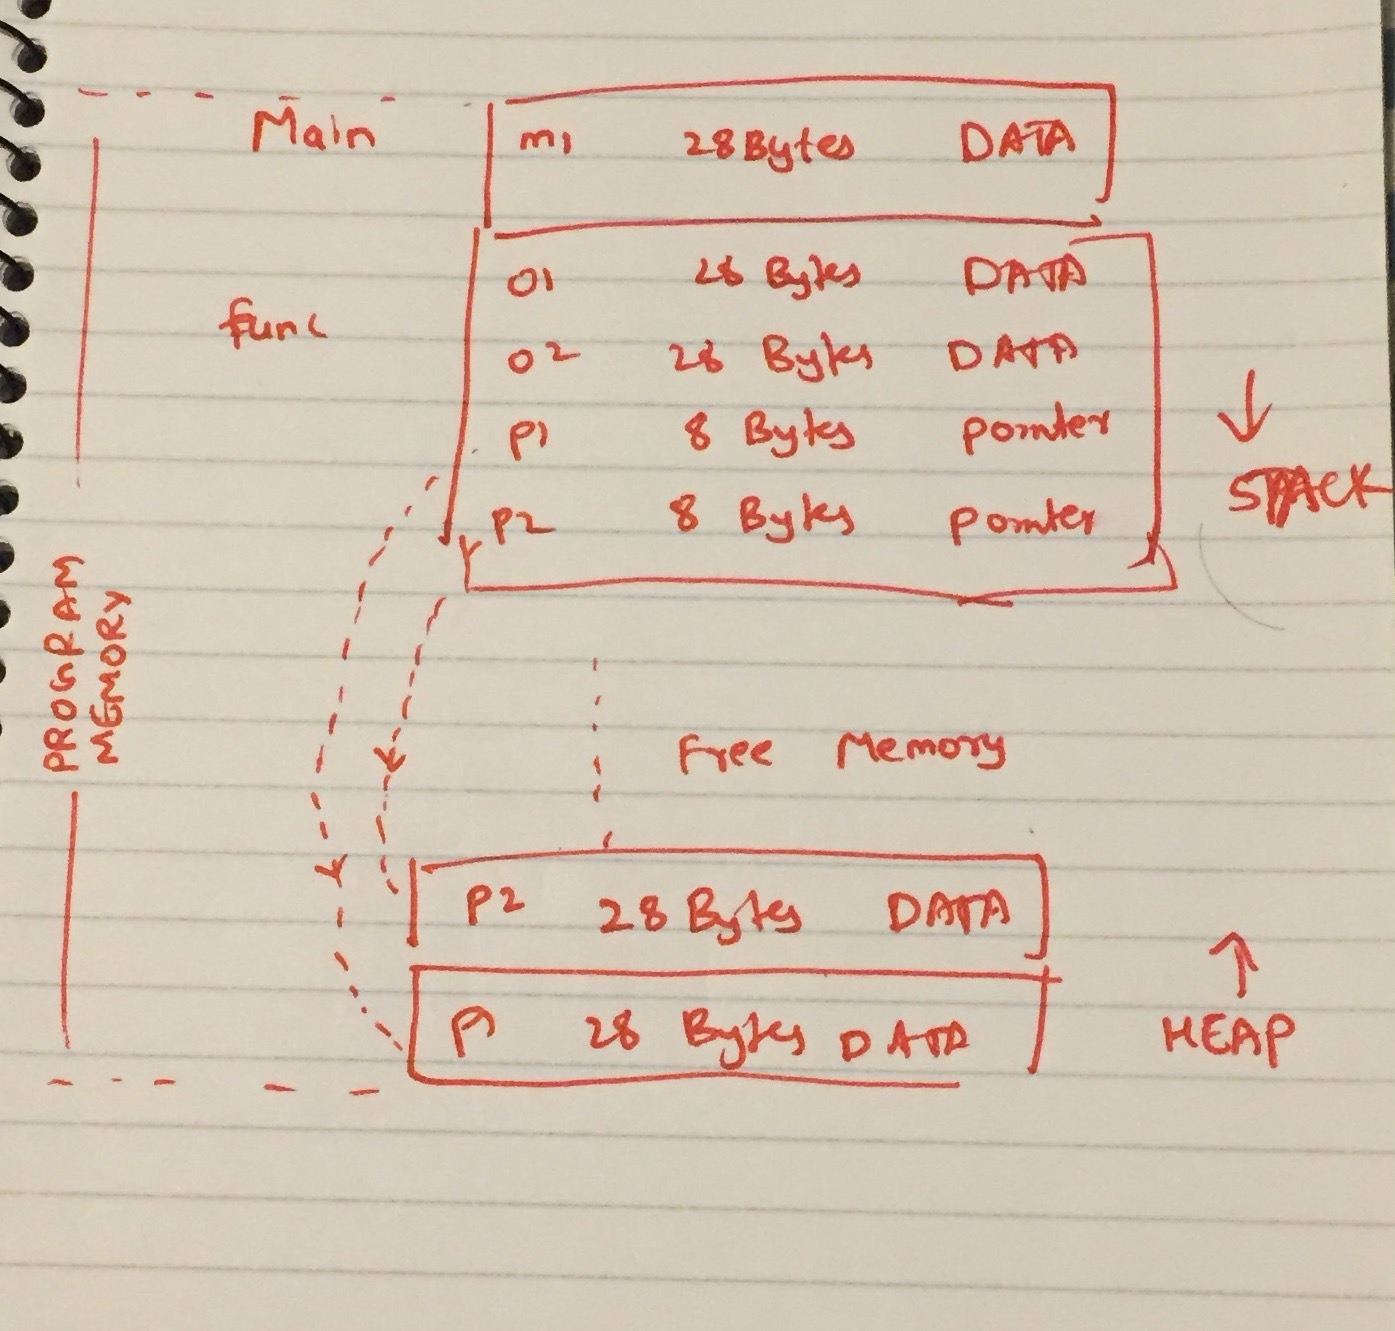 Main m1 28 Bytes DATA
o1 28 Bytes DATA
func
o2 28 Bytes DATA
p1 8 Bytes pointer
STACK
p2 8 Bytes pointer
PROGRAM
MEMORY
Free Memory
P2 28 Bytes DATA
P1 28 Bytes DATA
HEAP